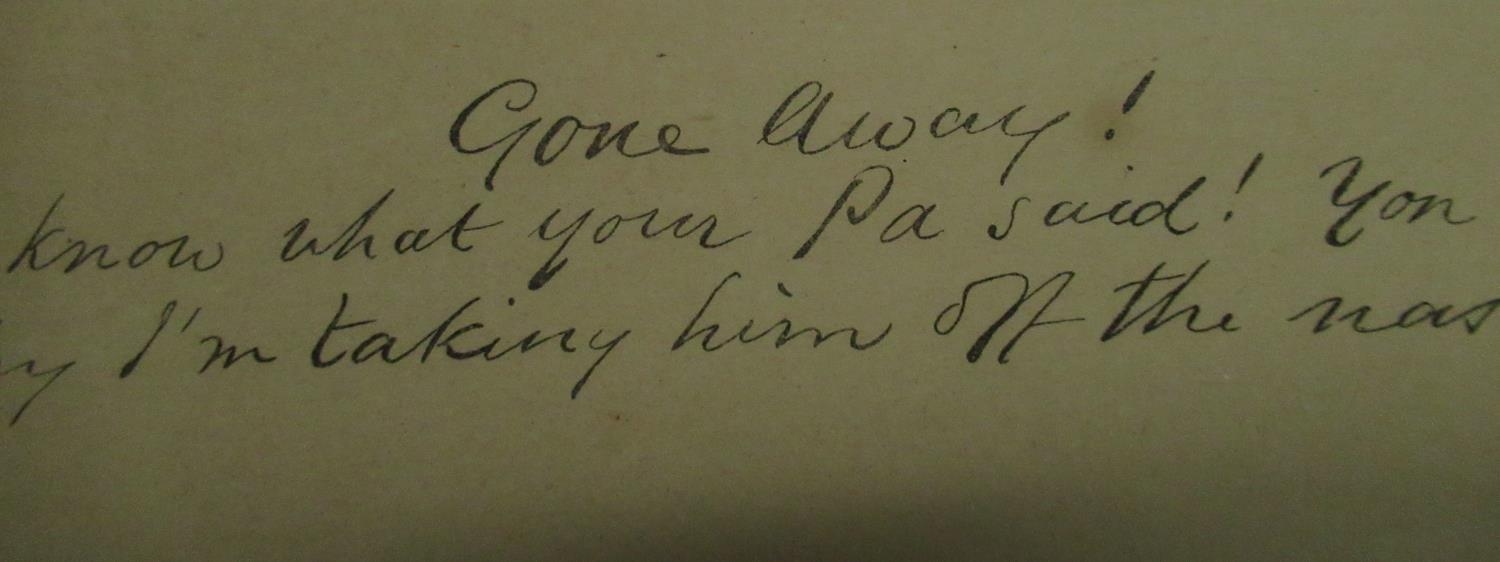 Gone Away!
know what your Pa said! You
y I'm taking him off the nas